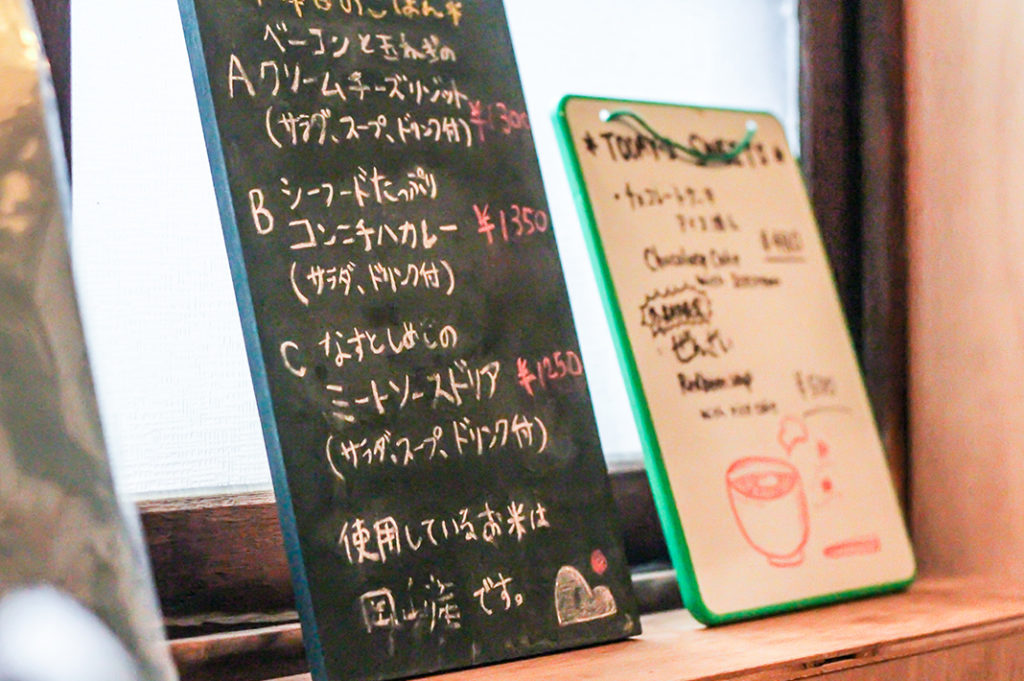 本日のごはん
ベーコンと玉ねぎの
A クリームチーズリゾット
(サラダ、スープ、ドリンク付) ¥1300
B シーフードたっぷり
コンニチハカレー ¥1350
(サラダ、ドリンク付)
C なすとしめじの
ミートソースドリア ¥1250
(サラダ、スープ、ドリンク付)
使用しているお米は
岡山産です。
* TODAY'S SWEETS *
・チョコレートケーキ
アイス添え
Chocolate Cake
with Icecream
ぜんざい
Redbean soup
with rice cake
¥500